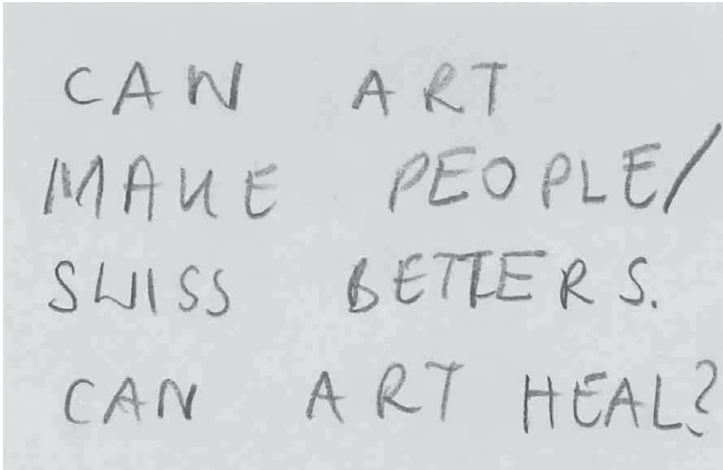 CAN ART
MAKE PEOPLE/
SWISS BETTERS.
CAN ART HEAL?